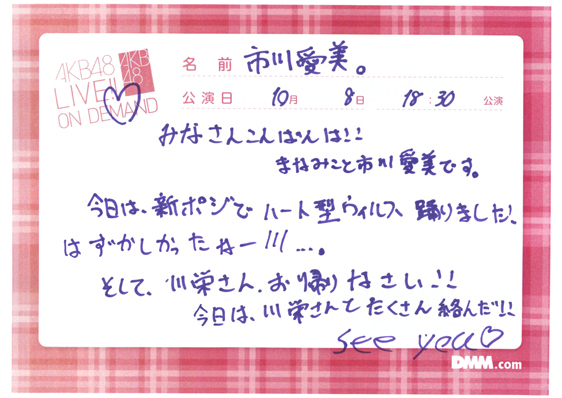 AKB48
LIVE!!
ON DEMAND
AKB
48
名前 市川愛美。
公演日 10月 8日 18:30 公演
みなさんこんばんは!!
まなみこと市川愛美です。
今日は、新ポジでハート型ウィルス踊りました!
はずかしかったねー///....。
そして、川栄さん、お帰りなさい!!
今日は、川栄さんとたくさん絡んだ!!
see you♡
DMM.com